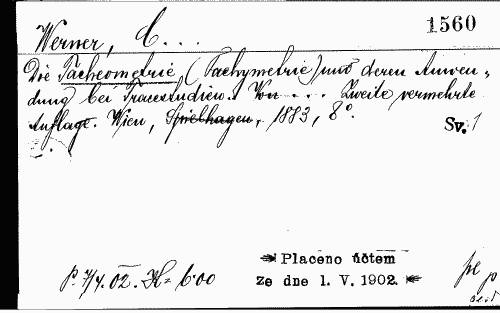 1560
Werner, C. . . .
Die Tacheometrie (Tachymetrie) und deren Anwen-
dung bei Tracestudien. Von . . . Zweite vermehrte
Auflage. Wien, Spielhagen, 1883, 8°.
Sv. 1
P. 7/4. 02. K = 6·00
Placeno účtem
ze dne 1. V. 1902.